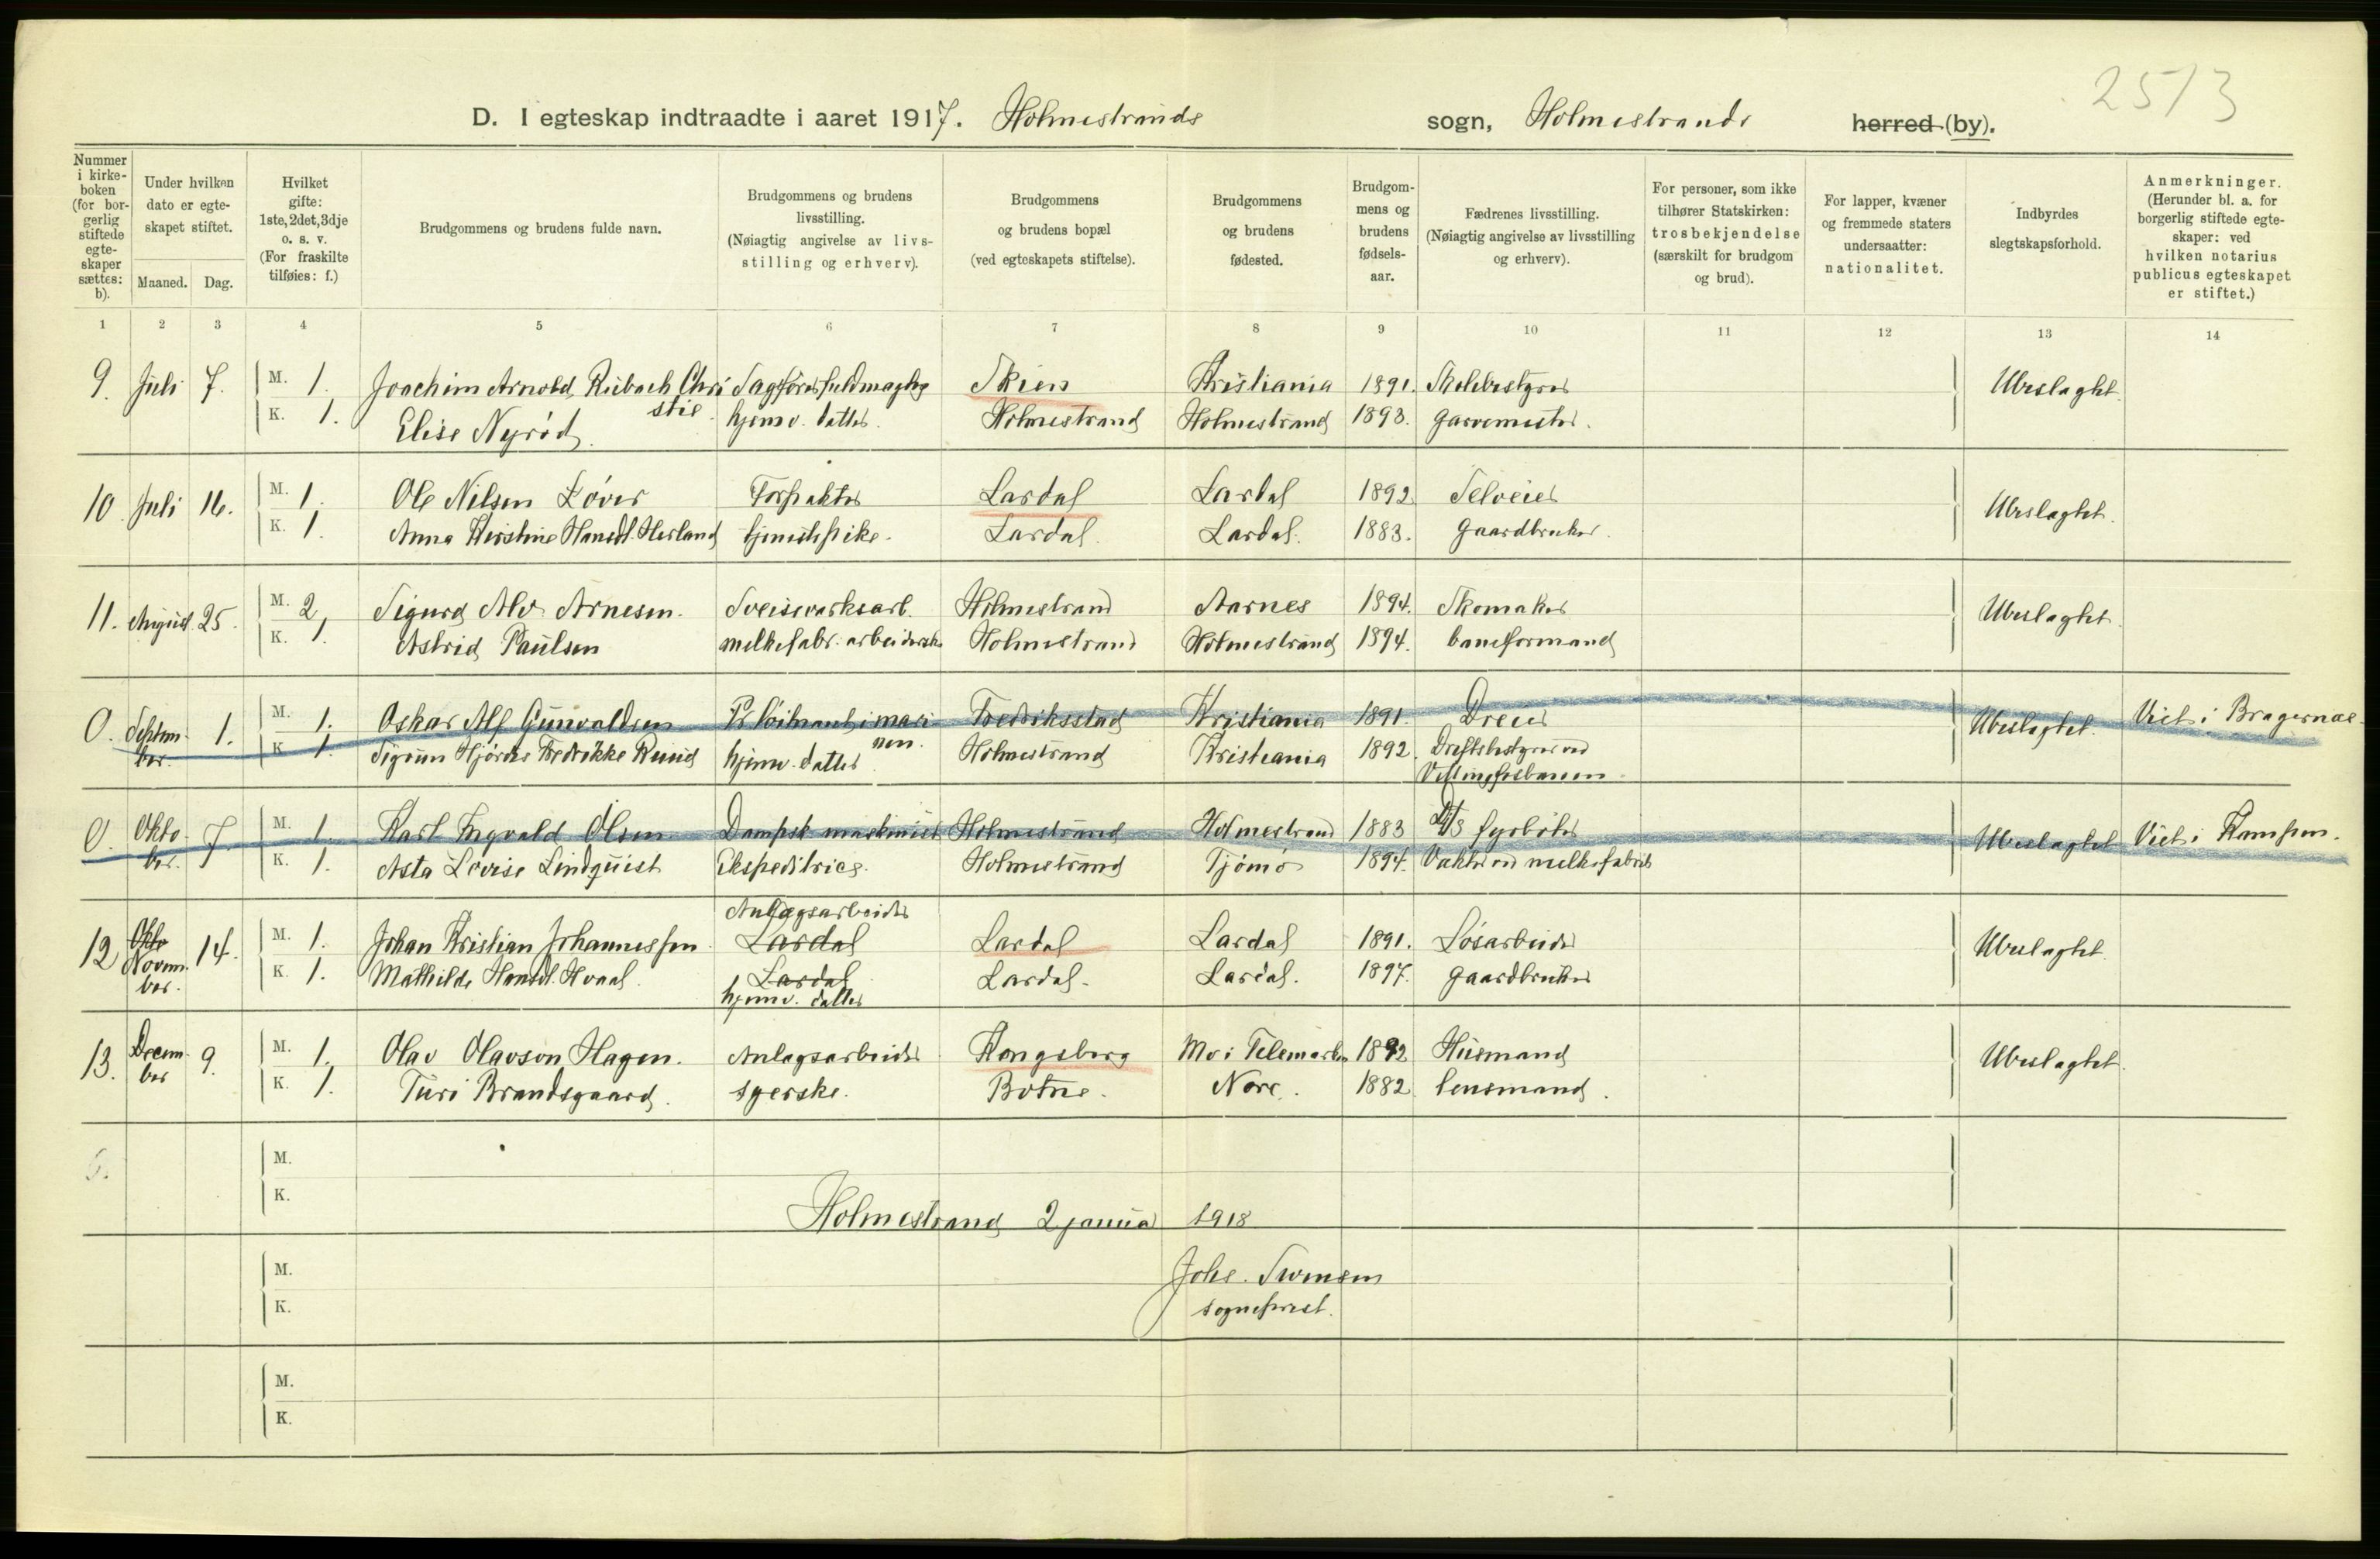 2513
D. I egteskap indtraadte i aaret 1917. Holmestrands sogn, Holmestrands herred (by).
Nummer i kirkeboken (for borgerlig stiftede egteskaper sættes: b).
Under hvilken dato er egteskapet stiftet.
Maaned. Dag.
Hvilket gifte: 1ste, 2det, 3dje o. s. v. (For fraskilte tilføies: f.)
Brudgommens og brudens fulde navn.
Brudgommens og brudens livsstilling. (Nøiagtig angivelse av livsstilling og erhverv).
Brudgommens og brudens bopæl (ved egteskapets stiftelse).
Brudgommens og brudens fødested.
Brudgommens og brudens fødselsaar.
Fædrenes livsstilling. (Nøiagtig angivelse av livsstilling og erhverv).
For personer, som ikke tilhører Statskirken: trosbekjendelse (særskilt for brudgom og brud).
For lapper, kvæner og fremmede staters undersaatter: nationalitet.
Indbyrdes slegtskapsforhold.
Anmerkninger. (Herunder bl. a. for borgerlig stiftede egteskaper: ved hvilken notarius publicus egteskapet er stiftet.)
1 2 3 4 5 6 7 8 9 10 11 12 13 14
9. Juli 7. M. 1. Joachim Arnold Rubach Christie Sagførerfuldmægtig Skien Kristiania 1891. Skolebestyrer Ubeslagtet.
K. 1. Elise Nyrød. hjemv. datter. Holmestrand Holmestrand 1893. garvemester.
10. Juli 16. M. 1. Ole Nilsen Løver Forpakter Lardal Lardal 1892 Selveier Ubeslagtet.
K. 1. Anna Kirstine Hansdt. Herland tjenestepike. Lardal. Lardal. 1883. gaardbruker.
11. August 25. M. 2 Sigurd Alv Arnesen. Sveiseverksarb. Holmestrand Aarnes 1894. Skomaker Ubeslagtet.
K. 1. Astrid Paulsen melkefabr. arbeiderske Holmestrand Holmestrand 1894. baneformand
0. September. 1. M. 1. Oskar Alf Gunvaldsen i marinen. Fredriksstad Kristiania 1891. Dreier Ubeslagtet. Viet i Bragernæs
K. 1. Sigrun Hjørdis Fredrikke hjemv. datter Holmestrand Kristiania 1892. Driftsbestyrer ved
0. Oktober. 7. M. 1. Karl Ingvald Olsen Dampsk. maskinist Holmestrand Holmestrand 1883 D/S fyrbøter Ubeslagtet Viet i Kampen.
K. 1. Asta Lovise Lindquist Ekspeditrice. Holmestrand Tjømø 1894. Vakter ved melkefabrik
12 Okto November. 14. M. 1. Johan Kristian Johannessen. Anlægsarbeider Lardal Lardal Lardal 1891. Løsarbeider Ubeslagtet.
K. 1. Mathilde Hansdt. Hvaal. Lardal hjemv. datter Lardal. Lardal. 1897. gaardbruker
13. December 9. M. 1. Olav Olavson Hagen. Anlægsarbeider Kongsberg Mo i Telemarken 1892 Husmand Ubeslagtet.
K. 1. Turi Brandsgaard. syerske. Botne. Nore. 1882. lensmand.
6. M.
K.
Holmestrand 2 januar 1918
M. Johs. Svensen
K. sogneprest.
M.
K.